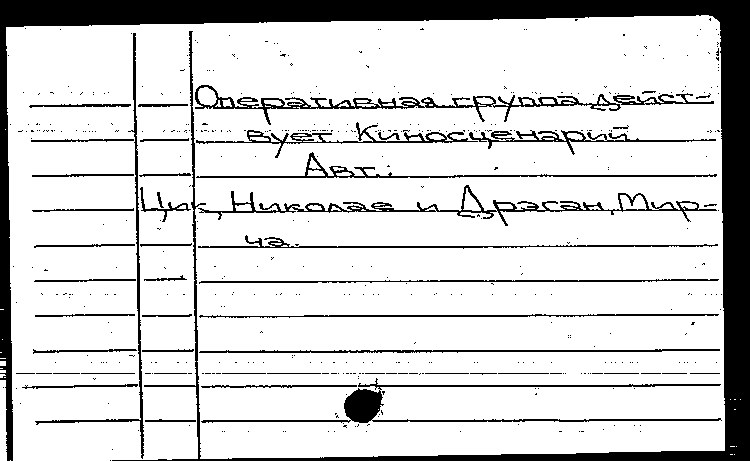 Оперативная группа дейст-
вует. Киносценарий.
Авт.:
Цик, Николае и Дрэган, Мир-
ча.